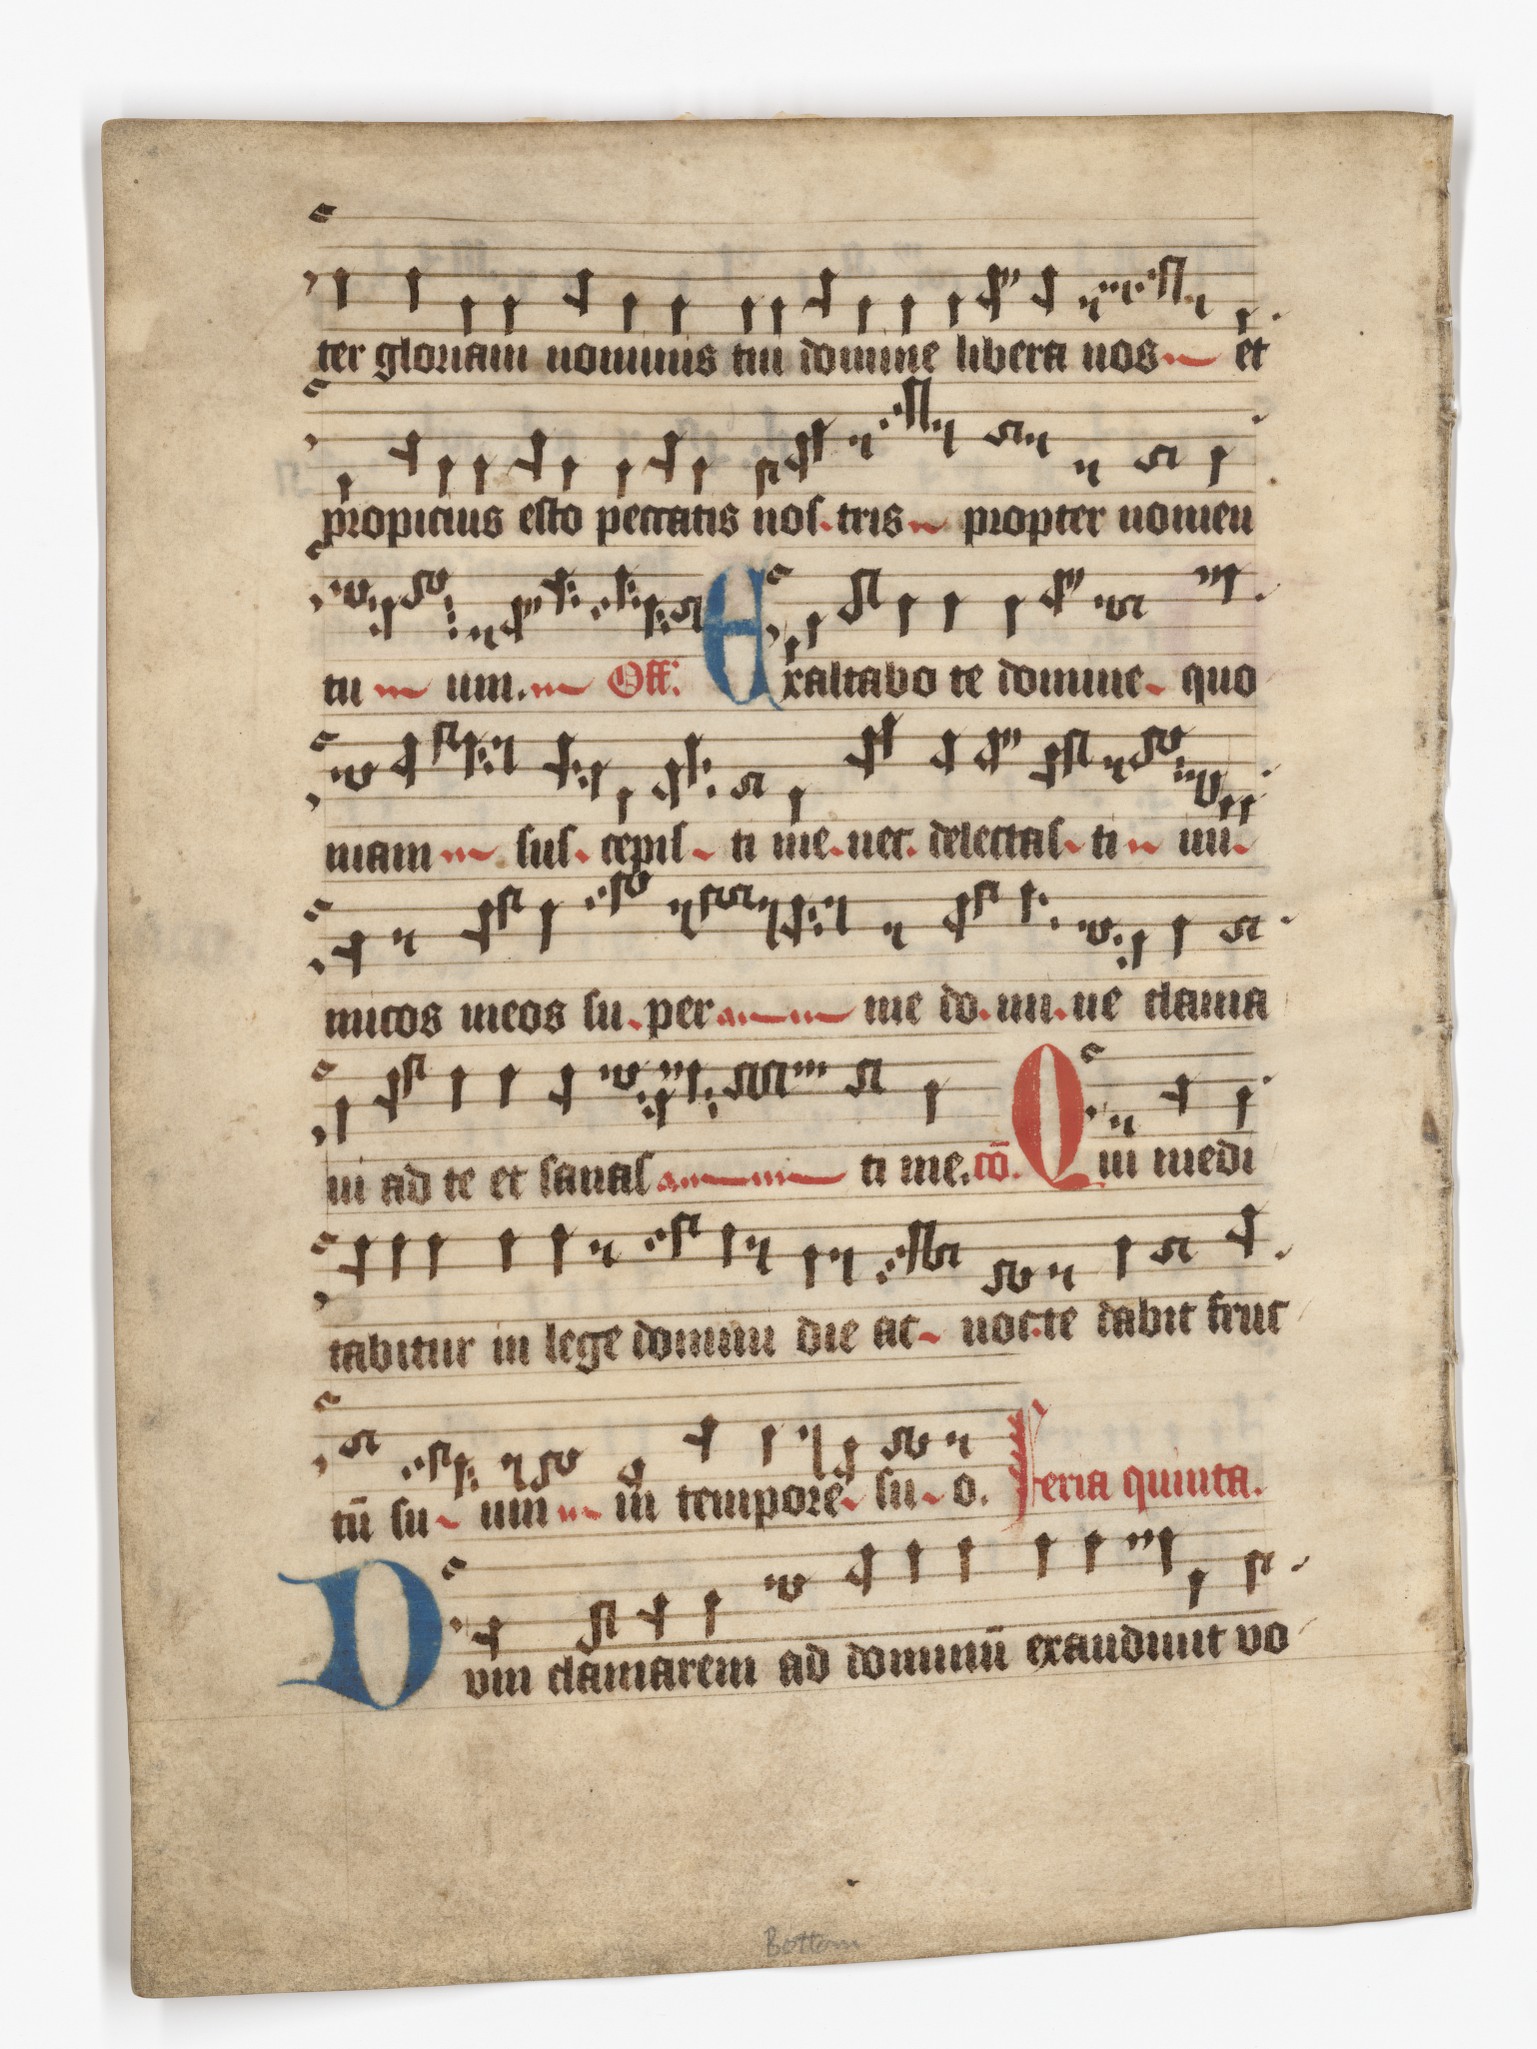 ter gloriam nominis tui domine libera nos et
propicius esto peccatis nos.tris propter nomen
tu um. Off. Exaltabo te domine quo
niam sus cepis ti me.nec. delectas ti ini
micos meos su.per me do.mi.ne clama
ui ad te et sanas ti me. cō. Qui medi
tabitur in lege domini die ac nocte dabit fruc
tū su um in tempore su o. Feria quinta.
Dvm clamarem ad dominū exaudiuit vo
Bottom